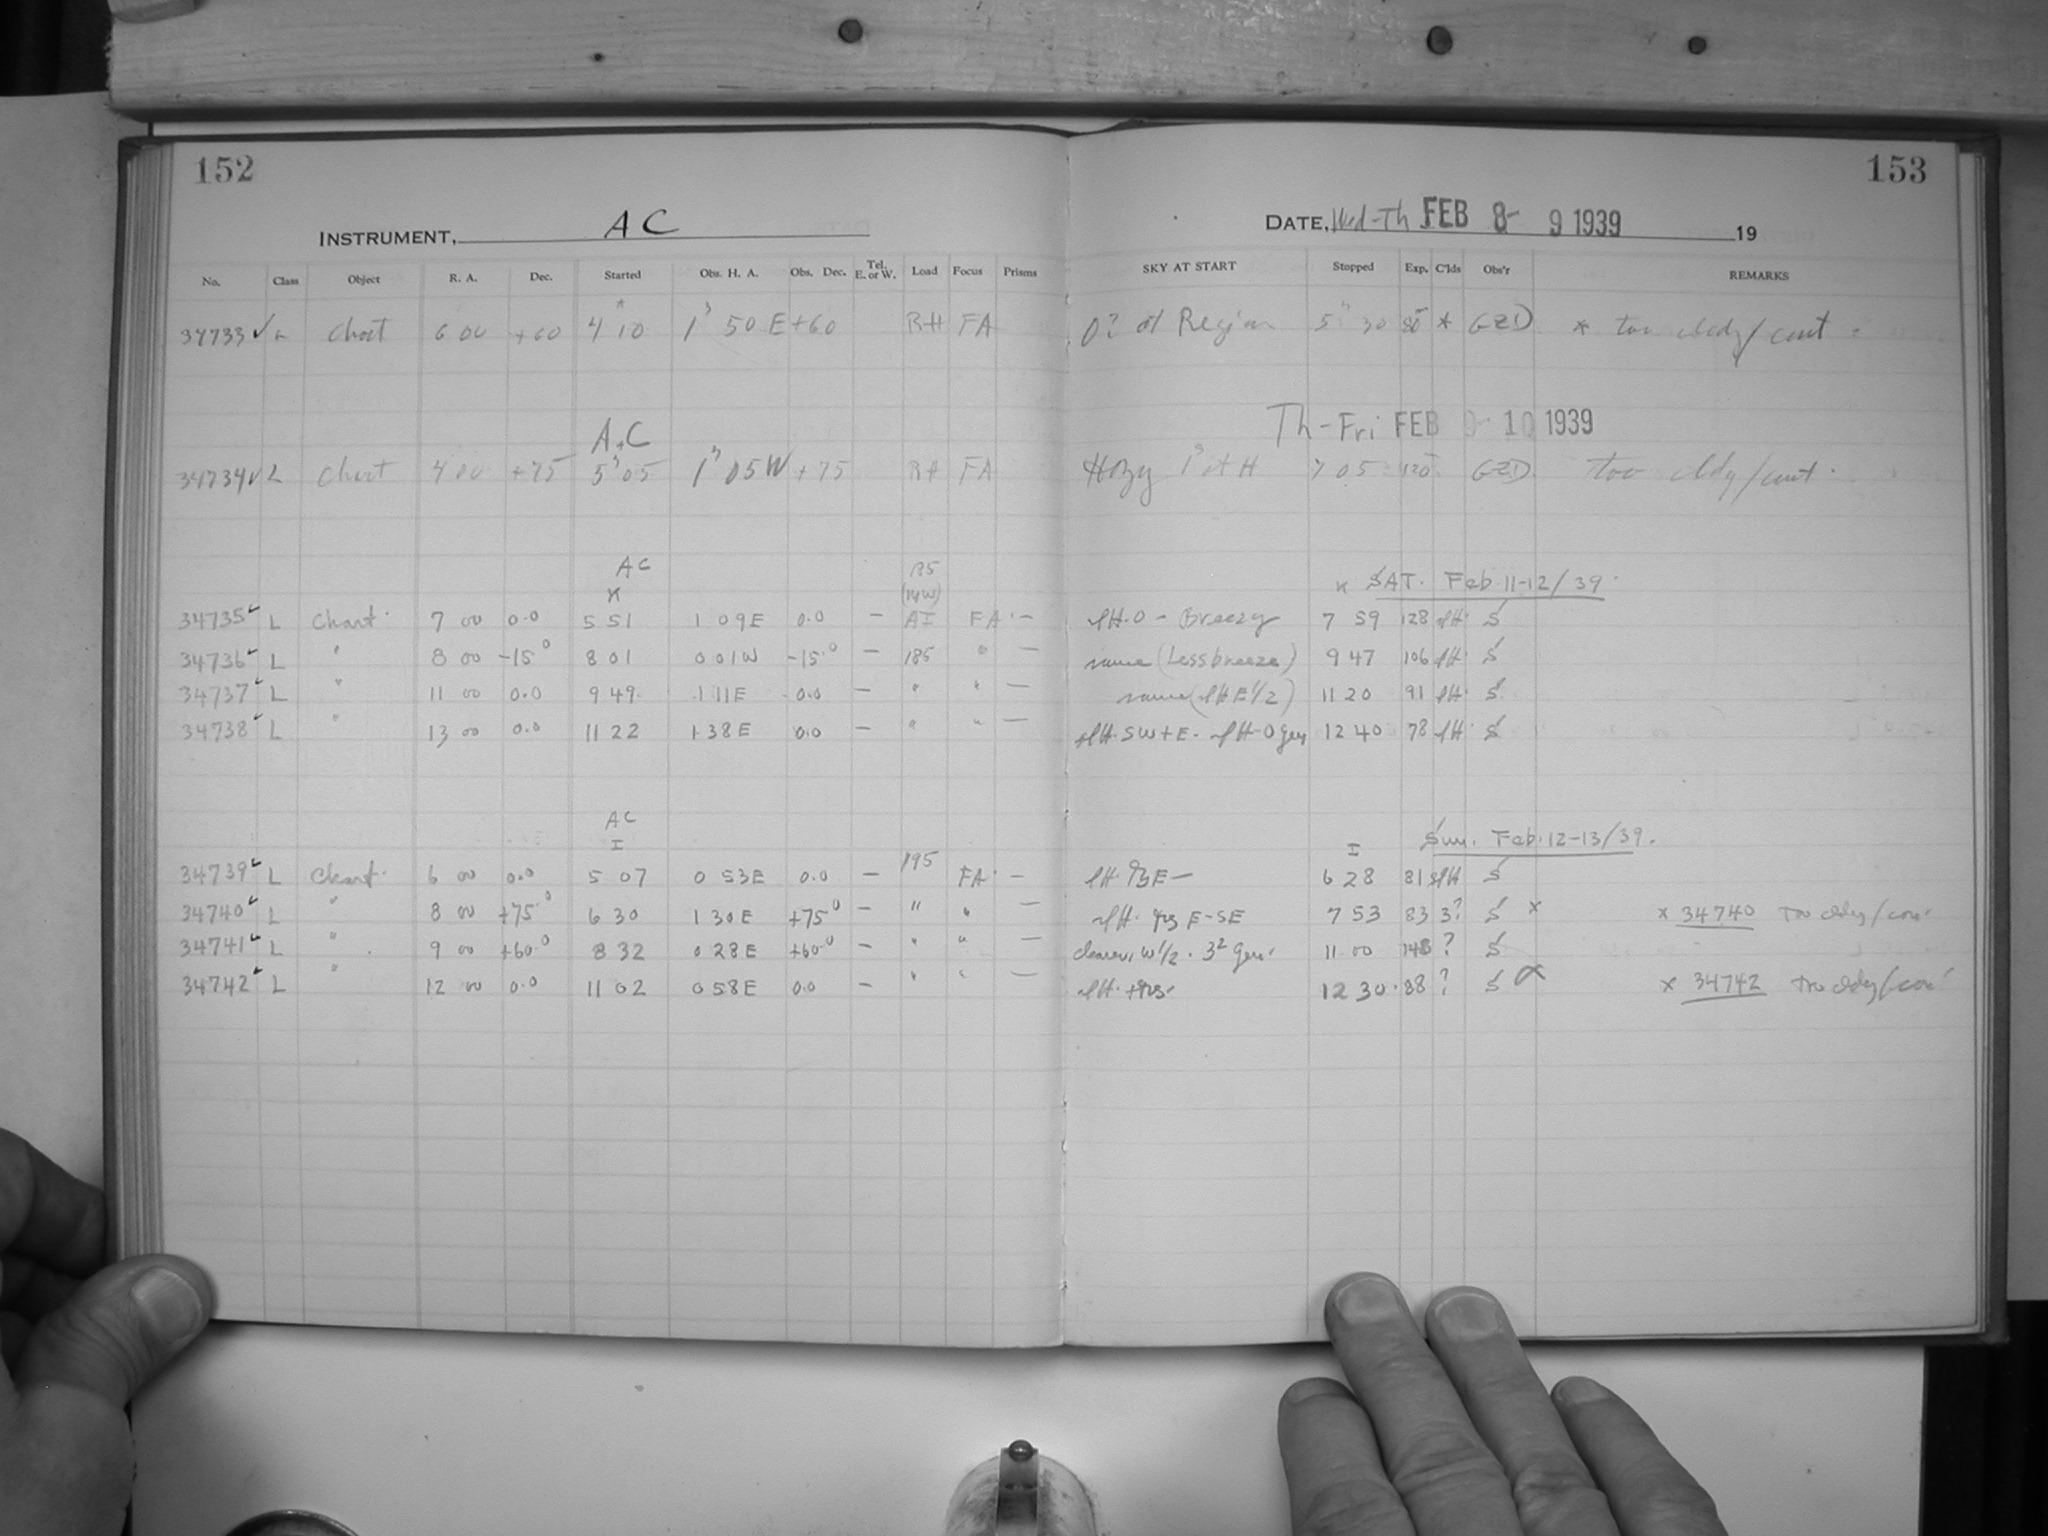 152 153
INSTRUMENT, A C DATE, Wed-Th FEB 8- 9 1939 19
No. Class Object R. A. Dec. Started Obs. H. A. Obs. Dec. Tel. E. or W. Load Focus Prisms SKY AT START Stopped Exp. C'lds Obs'r REMARKS
34733 ✓ L Chart 6 00 +60 4 10 1 50 E +60 RH FA 0? at Region 5 30 80 * GZD * too cldy/cont.
A.C Th-Fri FEB 9- 10 1939
34734 ✓ L Chart 4 00 +75 5 05 1 05 W +75 RH FA Hazy 7 05 120 GZD too cldy/cont.
AC K SAT. Feb. 11-12/39.
34735 ✓ L Chart. 7 00 0.0 5 51 1 09 E 0.0 — AI FA. — - Breezy 7 59 128 S
34736 ✓ L " 8 00 -15.0 8 01 0 01 W -15.0 — 185 " — same (Less breeze) 9 47 106 S
34737 ✓ L " 11 00 0.0 9 49 1 11 E 0.0 — " " — same 11 20 91 S
34738 ✓ L " 13 00 0.0 11 22 1 38 E 0.0 — " " — 12 40 78 S
AC I I Sun. Feb. 12-13/39.
34739 ✓ L Chart. 6 00 0.0 5 07 0 53 E 0.0 — 195 FA. — 6 28 81 S
34740 ✓ L " 8 00 +75.0 6 30 1 30 E +75.0 — " " — E-SE 7 53 83 3? S x x 34740 Too cldy/con.
34741 ✓ L " 9 00 +60.0 8 32 0 28 E +60.0 — " " — clearer, W 1/2. 11 00 148 ? S
34742 ✓ L " 12 00 0.0 11 02 0 58 E 0.0 — " " — 12 30 88 ? S x x 34742 Too cldy/con.